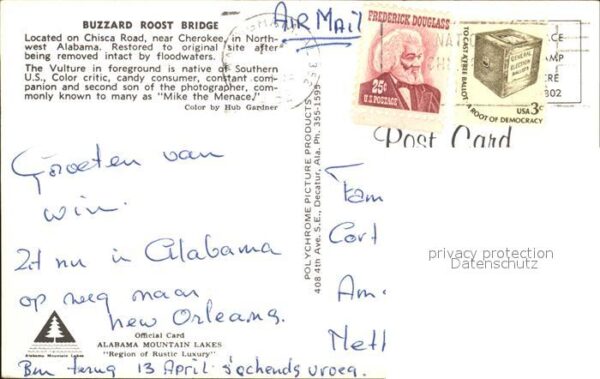 BUZZARD ROOST BRIDGE
Located on Chisca Road, near Cherokee, in North-
west Alabama. Restored to original site after
being removed intact by floodwaters.
The Vulture in foreground is native of Southern
U.S., Color critic, candy consumer, constant com-
panion and second son of the photographer, com-
monly known to many as "Mike the Menace."
Color by Hub Gardner
AIR MAIL
FREDERICK DOUGLASS
25¢
U.S. POSTAGE
TO CAST A FREE BALLOT
GENERAL
ELECTION
BALLOTS
USA 3c
A ROOT OF DEMOCRACY
Post Card
POLYCHROME PICTURE PRODUCTS
408 4th Ave. S.E., Decatur, Ala. Ph. 355-1595
Groeten van
Win.
Zit nu in Alabama
op weg naar
New Orleans.
Fam
Cort
Am.
Neth
Alabama Mountain Lakes
Official Card
ALABAMA MOUNTAIN LAKES
"Region of Rustic Luxury"
Ben terug 13 April s'ochends vroeg.
privacy protection
Datenschutz